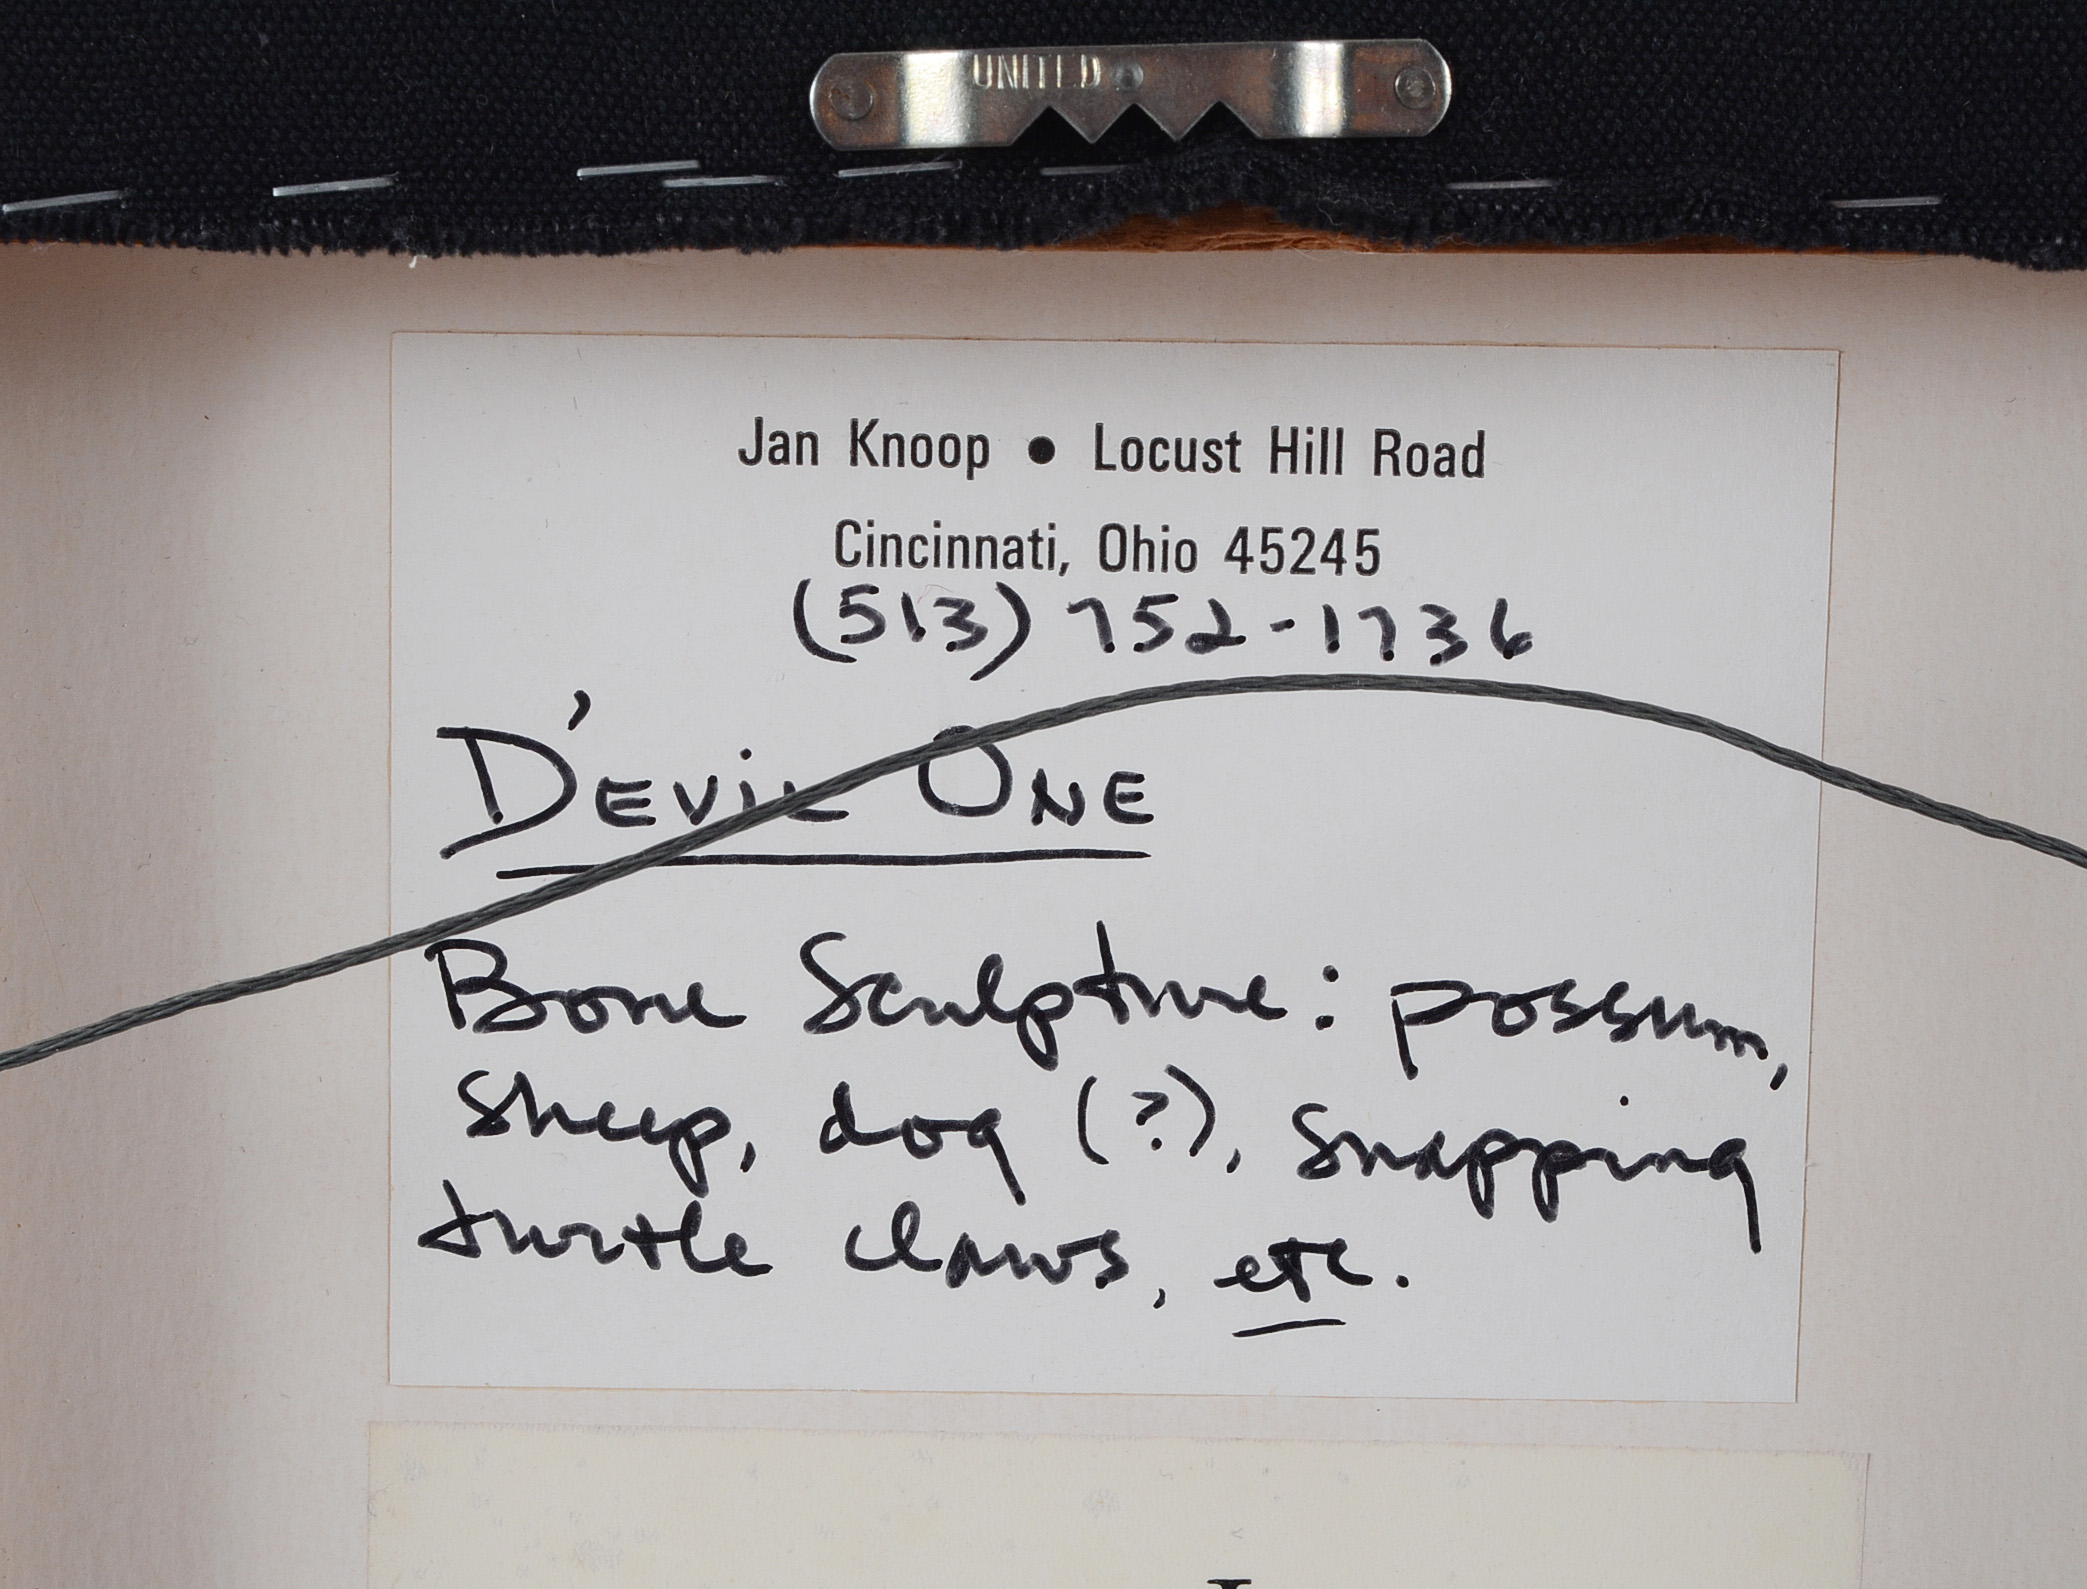 UNITED
Jan Knoop • Locust Hill Road
Cincinnati, Ohio 45245
(513) 752-1736
D'EVIL ONE
Bone Sculpture: possum,
sheep, dog (?), snapping
turtle claws, etc.